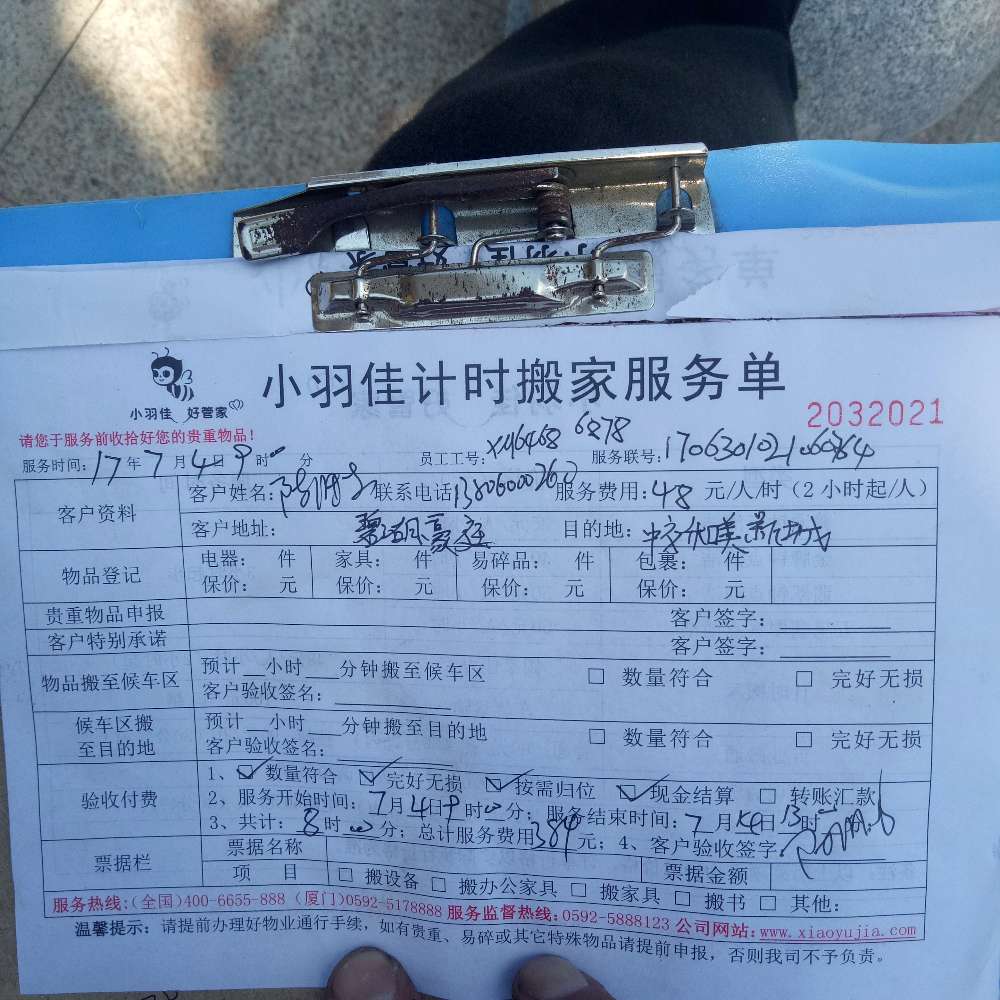 小羽佳 好管家
小羽佳计时搬家服务单
2032021
请您于服务前收拾好您的贵重物品!
服务时间: 17年7月4日9时00分 员工工号: 6278 服务联号:
客户资料 客户姓名: 联系电话 服务费用: 48元/人/时(2小时起/人)
客户地址: 碧湖豪庭 目的地:
物品登记 电器: 件 家具: 件 易碎品: 件 包裹: 件
保价: 元 保价: 元 保价: 元 保价: 元
贵重物品申报 客户签字:
客户特别承诺 客户签字:
物品搬至候车区 预计__小时___分钟搬至候车区 □ 数量符合 □ 完好无损
客户验收签名:
候车区搬至目的地 预计__小时___分钟搬至目的地 □ 数量符合 □ 完好无损
客户验收签名:
验收付费 1、☑数量符合 ☑完好无损 ☑按需归位 ☑现金结算 □ 转账汇款
2、服务开始时间: 7月4日9时00分; 服务结束时间: 7月4日13时
3、共计: 8时00分; 总计服务费用384元; 4、客户验收签字
票据栏 票据名称 票据金额
项 目 □ 搬设备 □ 搬办公家具 □ 搬家具 □ 搬书 □ 其他:
服务热线:(全国)400-6655-888 (厦门)0592-5178888 服务监督热线:0592-5888123 公司网站:www.xiaoyujia.com
温馨提示: 请提前办理好物业通行手续, 如有贵重、易碎或其它特殊物品请提前申报, 否则我司不予负责。